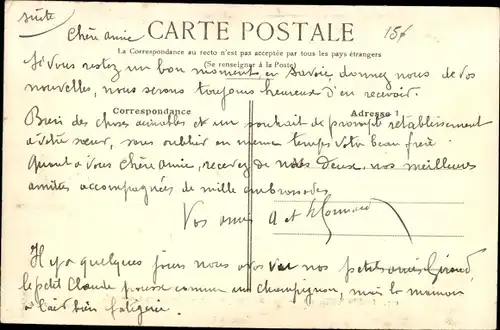 suite
Chère amie
CARTE POSTALE
15f
La Correspondance au recto n'est pas acceptée par tous les pays étrangers
(Se renseigner à la Poste)
Si vous restez un bon moment en Savoie donnez nous de vos
nouvelles, nous serons toujours heureux d'en recevoir.
Correspondance
Adresse
Bien des choses aimables et un souhait de prompt rétablissement
à votre sœur, sans oublier en même temps votre beau frère.
Quant à vous chère amie, recevez de nous deux, nos meilleures
amitiés accompagnées de mille embrassades
Vos amis A et
Il y a quelques jours nous avons vu nos petits amis Giroud,
le petit Claude pousse comme un champignon, mais la maman
a l'air bien fatiguée.